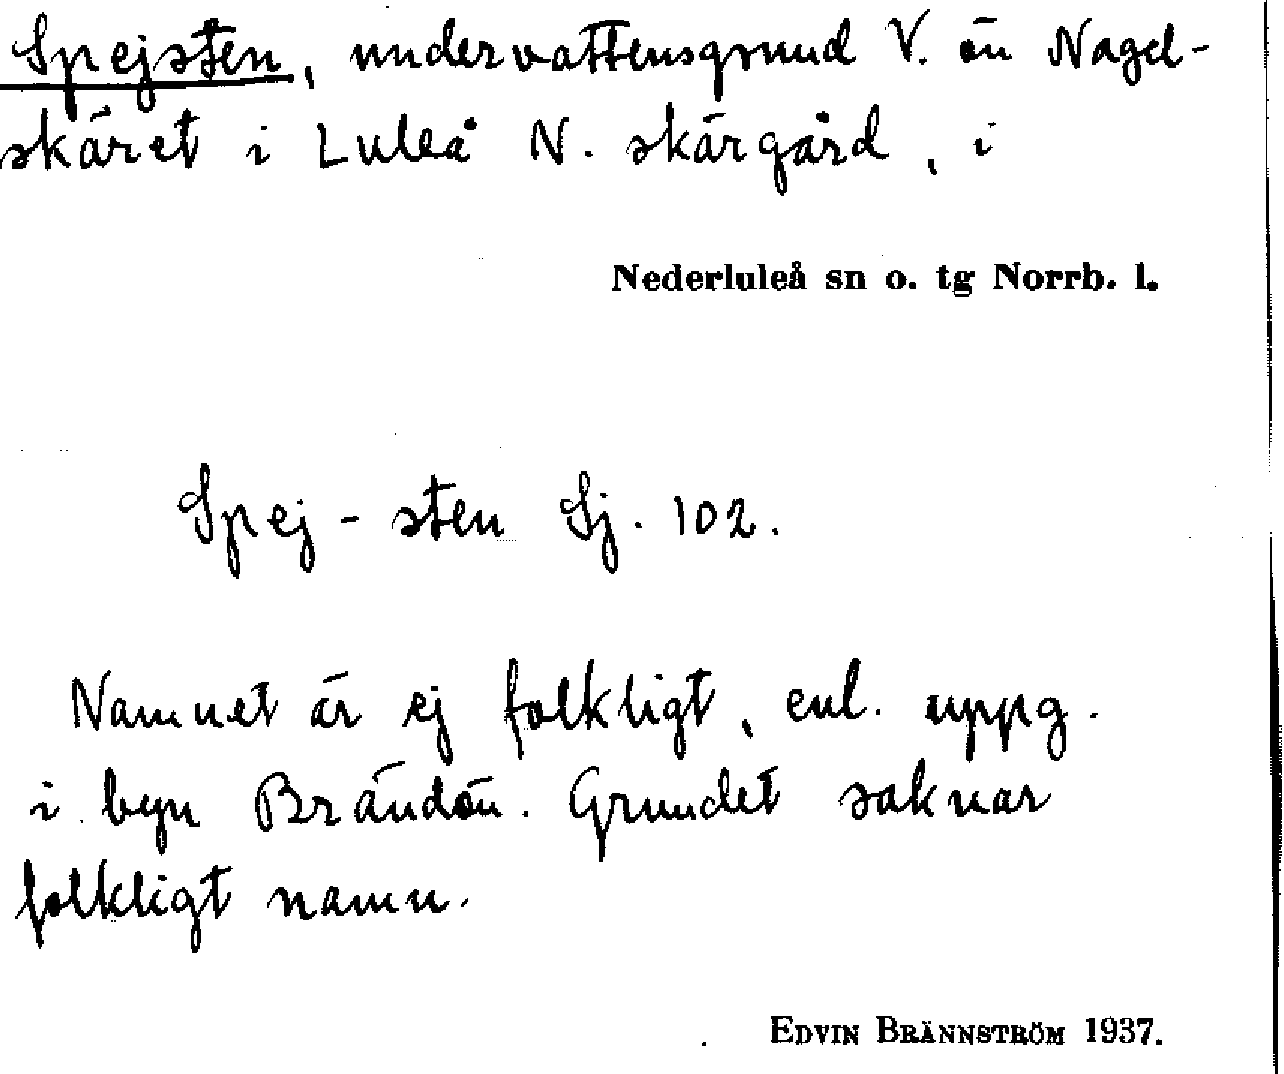 Spejsten, undervattensgrund V. ön Nagel-
skäret i Luleå N. skärgård, i
Nederluleå sn o. tg Norrb. l.
Spej - sten Sj. 102.
Namnet är ej folkligt, enl. uppg.
i byn Brändön. Grundet saknar
folkligt namn.
EDVIN BRÄNNSTRÖM 1937.